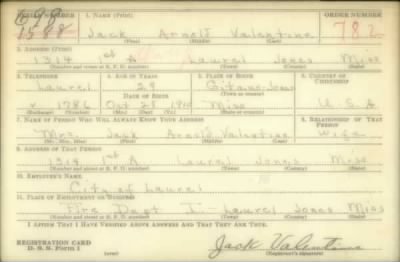 SERIAL NUMBER 1. NAME (Print) ORDER NUMBER
1588 Jack Arnold Valentine 782
(First) (Middle) (Last)
2. ADDRESS (Print)
1314 1st A Laurel Jones Miss
(Number and street or R. F. D. number) (Town) (County) (State)
3. TELEPHONE 4. AGE IN YEARS 5. PLACE OF BIRTH 6. COUNTRY OF CITIZENSHIP
Laurel 29 Gitano, Jones
DATE OF BIRTH (Town or county)
1786 Oct 28 1910 Miss U. S. A
(Exchange) (Number) (Mo.) (Day) (Yr.) (State or country)
7. NAME OF PERSON WHO WILL ALWAYS KNOW YOUR ADDRESS 8. RELATIONSHIP OF THAT PERSON
Mrs. Jack Arnold Valentine Wife
(Mr., Mrs., Miss) (First) (Middle) (Last)
9. ADDRESS OF THAT PERSON
1314 1st A Laurel Jones Miss
(Number and street or R. F. D. number) (Town) (County) (State)
10. EMPLOYER'S NAME
City of Laurel
11. PLACE OF EMPLOYMENT OR BUSINESS
Fire Dept Laurel Jones Miss
(Number and street or R. F. D. number) (Town) (County) (State)
I AFFIRM THAT I HAVE VERIFIED ABOVE ANSWERS AND THAT THEY ARE TRUE.
REGISTRATION CARD
D. S. S. Form 1 (over) Jack Valentine
(Registrant's signature)